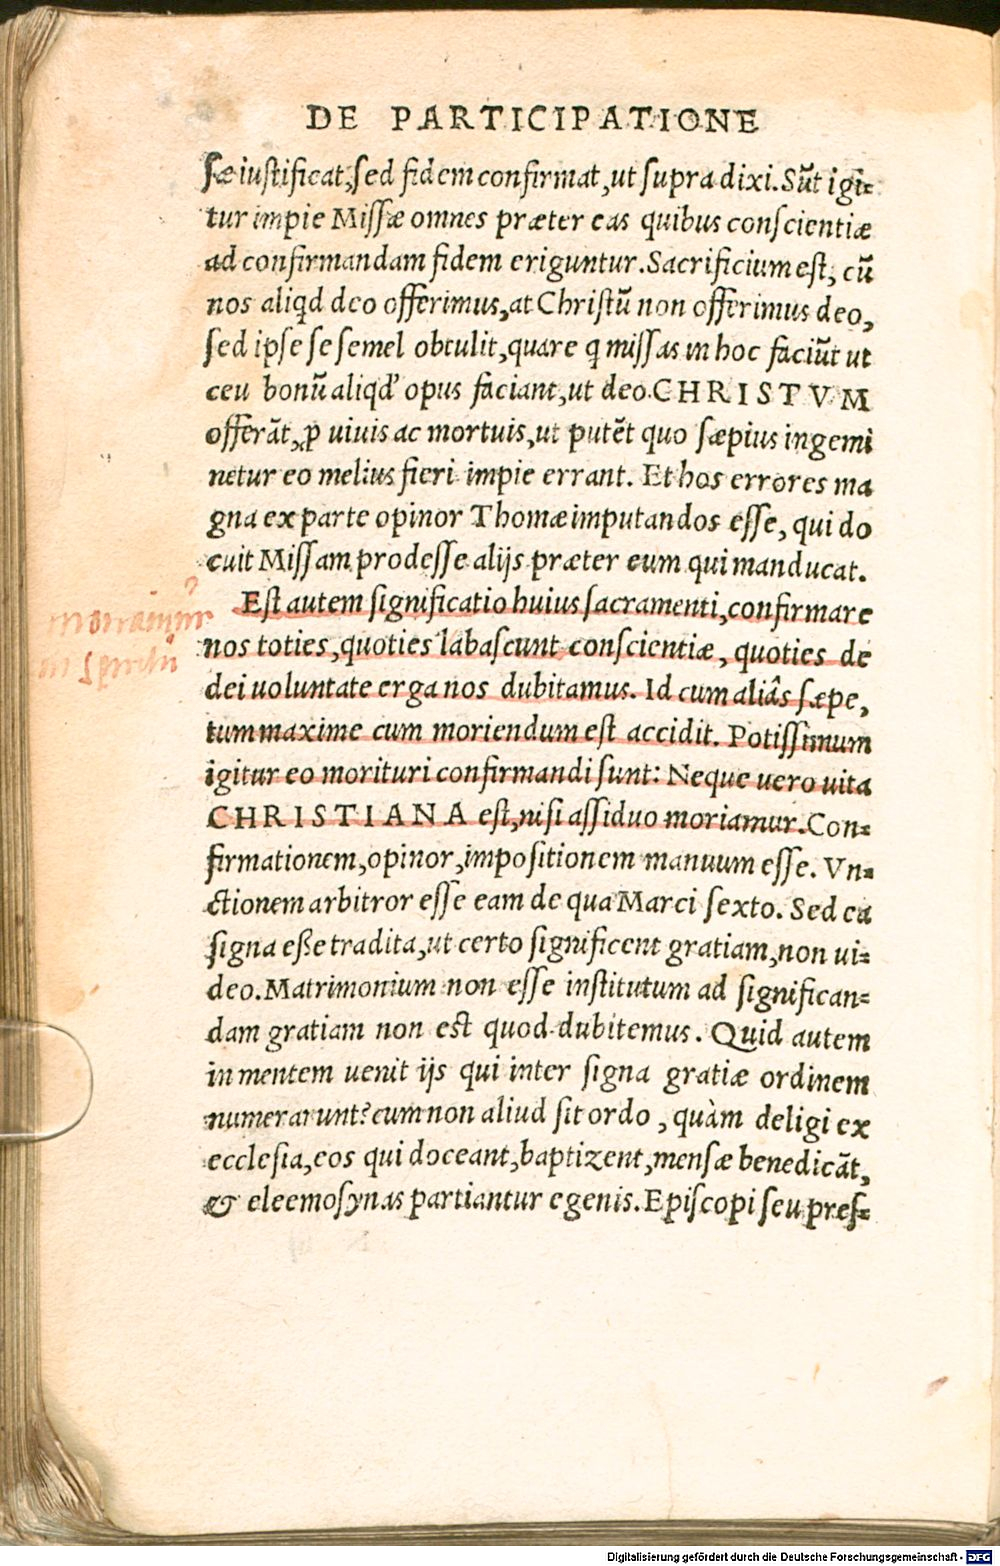 DE PARTICIPATIONE
ſæ iuſtificat, ſed fidem confirmat, ut ſupra dixi. Sūt igi-
tur impie Miſſæ omnes præter eas quibus conſcientiæ
ad confirmandam fidem eriguntur. Sacrificium eſt, cū
nos aliqd deo offerimus, at Chriſtū non offerimus deo,
ſed ipſe ſe ſemel obtulit, quare q miſſas in hoc faciūt ut
ceu bonū aliqd' opus faciant, ut deo CHRISTVM
offerāt, p uiuis ac mortuis, ut putēt quo ſæpius ingemi
netur eo melius fieri impie errant. Et hos errores ma
gna ex parte opinor Thomæ imputandos eſſe, qui do
cuit Miſſam prodeſſe alijs præter eum qui manducat.
Eſt autem ſignificatio huius ſacramenti, confirmare
nos toties, quoties labaſcunt conſcientiæ, quoties de
moriamur
in spiritu
dei uoluntate erga nos dubitamus. Id cum aliâs ſæpe,
tum maxime cum moriendum eſt accidit. Potiſſimum
igitur eo morituri confirmandi ſunt: Neque vero uita
CHRISTIANA eſt, niſi aſſiduo moriamur. Con-
firmationem, opinor, impoſitionem manuum eſſe. Vn-
ctionem arbitror eſſe eam de qua Marci ſexto. Sed ea
ſigna eße tradita, ut certo ſignificent gratiam, non ui-
deo. Matrimonium non eſſe inſtitutum ad ſignifican-
dam gratiam non eſt quod dubitemus. Quid autem
in mentem uenit ijs qui inter ſigna gratiæ ordinem
numerarunt? cum non aliud ſit ordo, quàm deligi ex
eccleſia, eos qui doceant, baptizent, menſæ benedicāt,
& eleemoſynas partiantur egenis. Epiſcopi ſeu preſ-
Digitalisierung gefördert durch die Deutsche Forschungsgemeinschaft - DFG